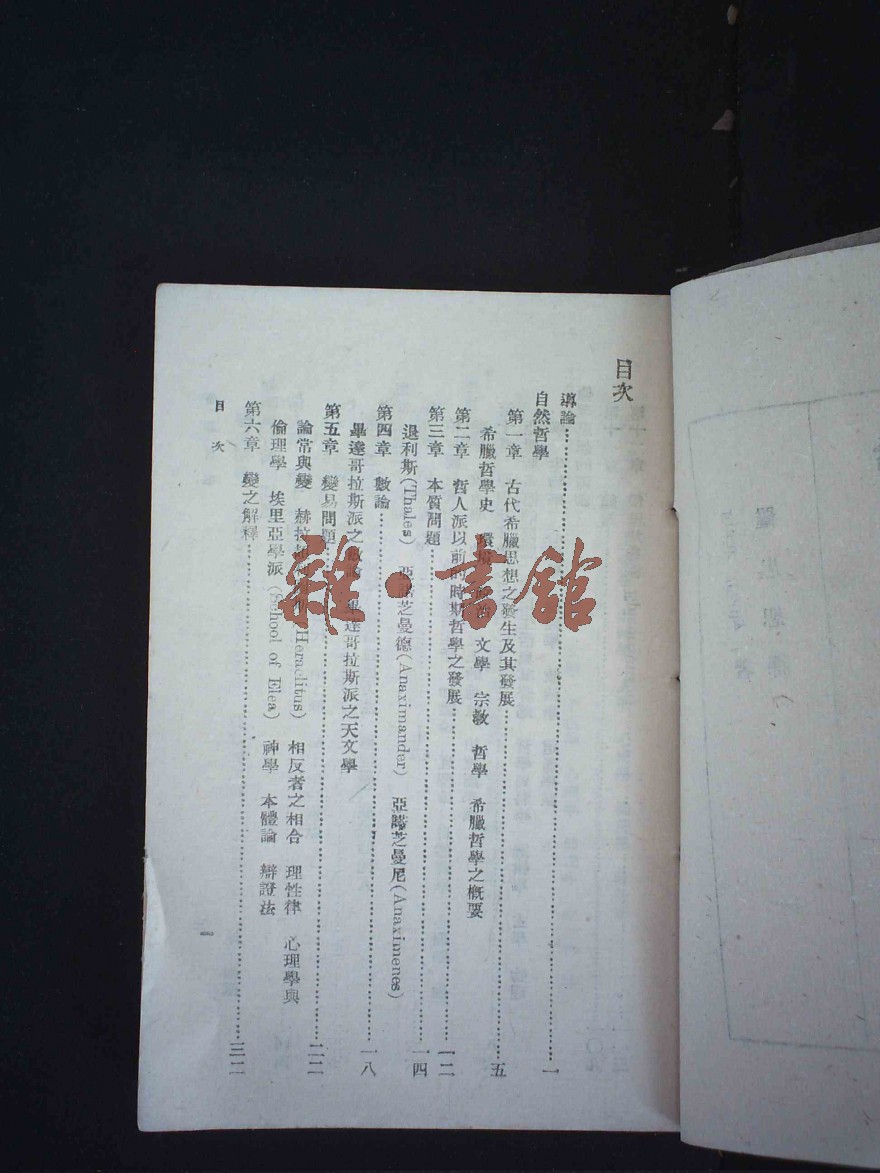 目次
導論……一
自然哲學
第一章 古代希臘思想之發生及其發展……五
希臘哲學史 環境 政治 文學 宗教 哲學 希臘哲學之概要
第二章 哲人派以前的時期哲學之發展……一二
第三章 本質問題……一四
退利斯(Thales) 亞諾芝曼德(Anaximander) 亞諾芝曼尼(Anaximenes)
第四章 數論……一八
畢達哥拉斯派之數論 畢達哥拉斯派之天文學
第五章 變易問題……二二
論常與變 赫拉 (Heraclitus) 相反者之相合 理性律 心理學與
倫理學 埃里亞學派(School of Elea) 神學 本體論 辯證法
第六章 變之解釋……三二
目次
一
雜·書館